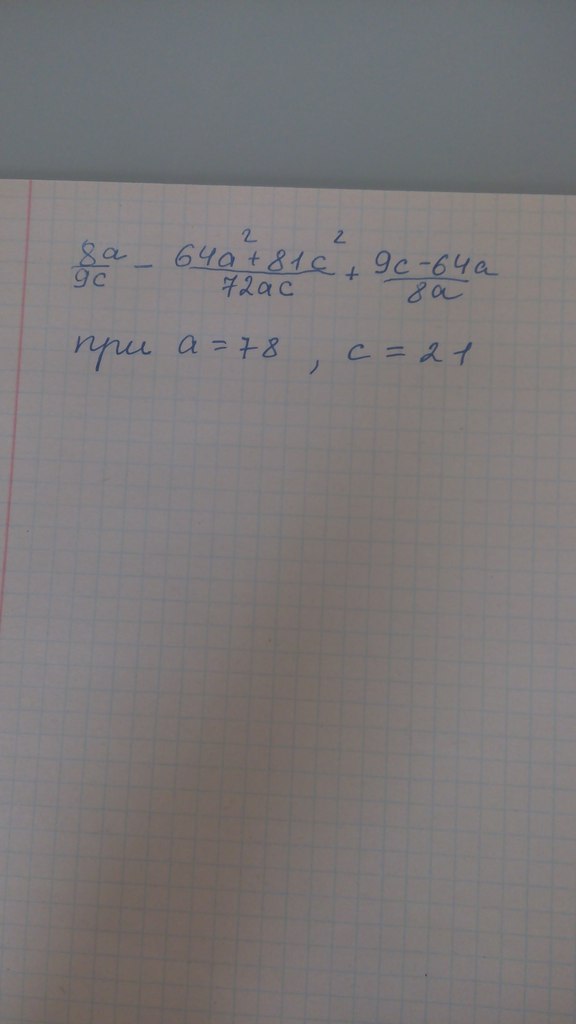 8a/9c − (64a² + 81c²)/72ac + (9c − 64a)/8a
при a = 78 , c = 21